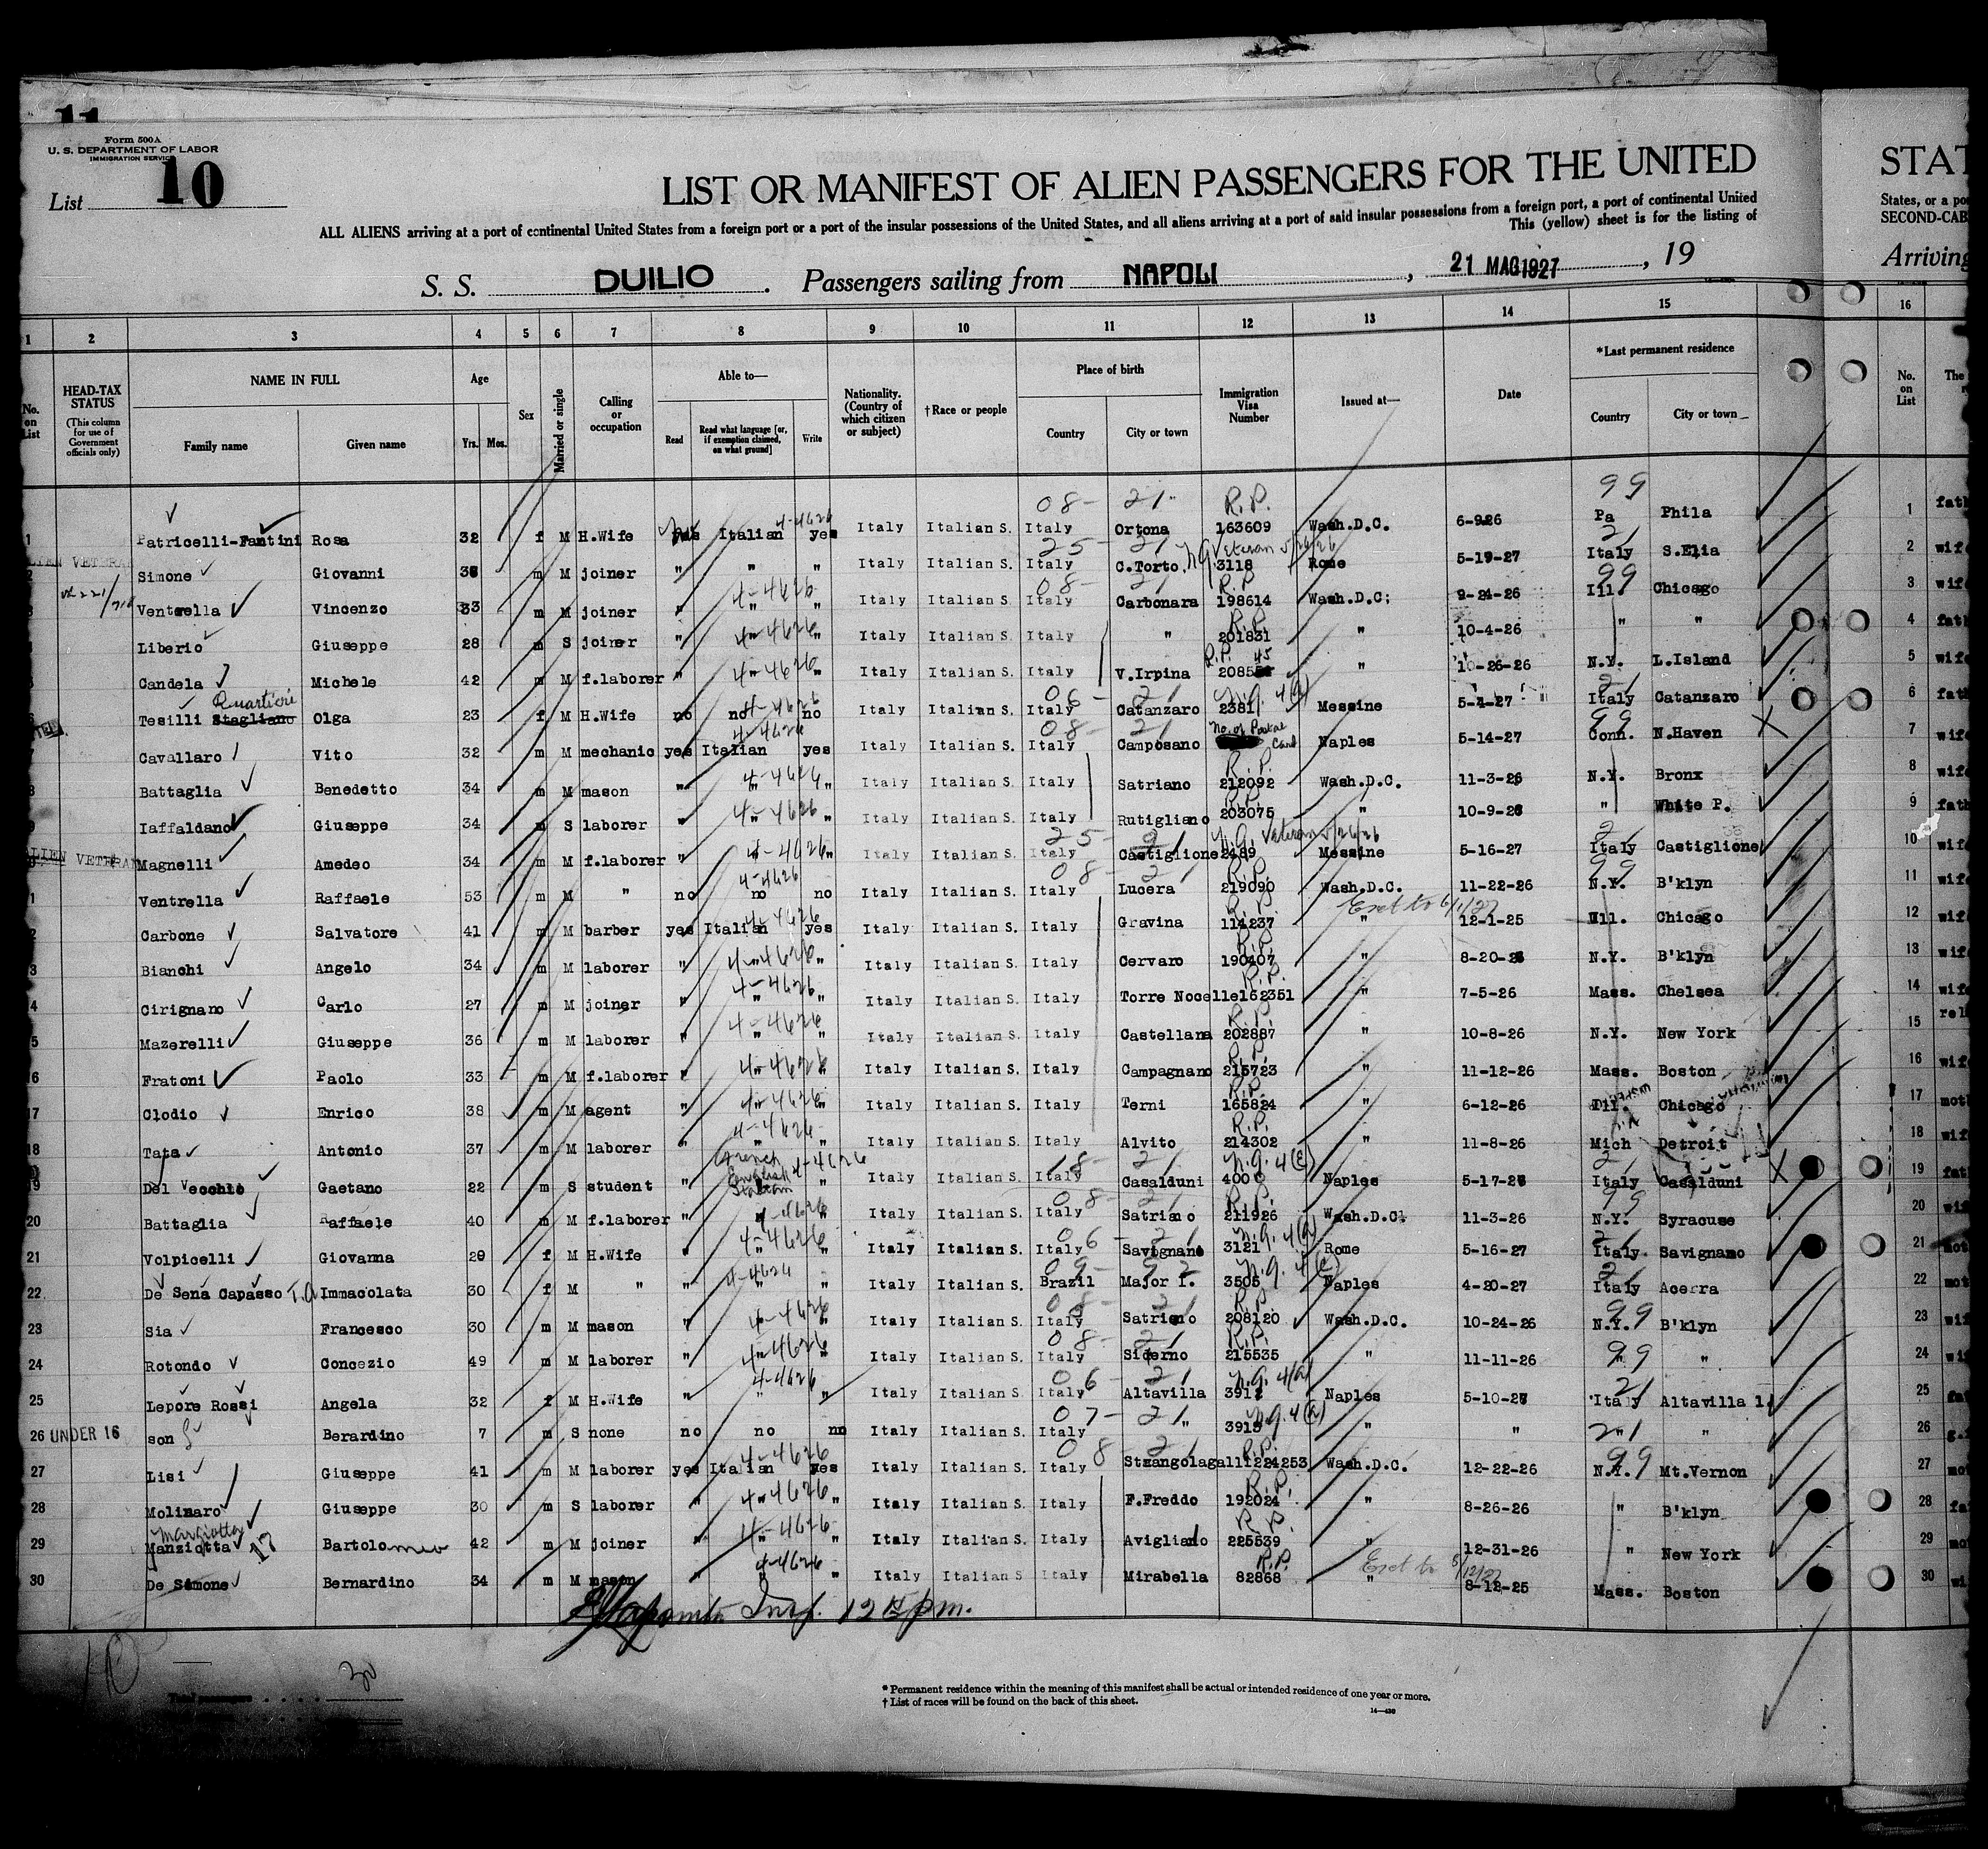 11
Form 500A
U. S. DEPARTMENT OF LABOR
IMMIGRATION SERVICE
List 10
LIST OR MANIFEST OF ALIEN PASSENGERS FOR THE UNITED
ALL ALIENS arriving at a port of continental United States from a foreign port or a port of the insular possessions of the United States, and all aliens arriving at a port of said insular possessions from a foreign port, a port of continental United
This (yellow) sheet is for the listing of
S. S. DUILIO. Passengers sailing from NAPOLI, 21 MAG 1927, 19
STAT
States, or a po
SECOND-CAB
Arriving
1 2 3 4 5 6 7 8 9 10 11 12 13 14 15 16
No. on List
HEAD-TAX STATUS (This column for use of Government officials only)
NAME IN FULL Family name Given name
Age Yrs. Mos.
Sex
Married or single
Calling or occupation
Able to— Read Read what language [or, if exemption claimed, on what ground] Write
Nationality. (Country of which citizen or subject)
†Race or people
Place of birth Country City or town
Immigration Visa Number
Issued at—
Date
*Last permanent residence Country City or town
No. on List
The
08- 21 R.P. 99
1 Patricelli-Fantini Rosa 32 f M H.Wife yes Italian 4-4626 yes Italy Italian S. Italy Ortona 163609 Wash.D.C. 6-926 Pa Phila 1 fath
ALIEN VETERAN 25- 21 N.Q. Veteran 5/26/26 21
2 Simone Giovanni m M joiner " " " Italy Italian S. Italy C.Torto. 3118 Rome 5-19-27 Italy S.Elia 2 wife
08- 21 R.P. 99
3 Ventrella Vincenzo 33 m M joiner " 4-4626 " Italy Italian S. Italy Carbonara 198614 Wash.D.C. 9-24-26 Ill. Chicago 3 wife
R.P.
4 Liberio Giuseppe 28 m S joiner " 4-4626 " Italy Italian S. Italy " 201831 " 10-4-26 " " 4 fath
R.P. 45
5 Candela Michele 42 m M f.laborer " 4-4626 " Italy Italian S. Italy V.Irpina 2085 " 10-26-26 N.Y. L.Island 5 wife
Quartieri 06- 21 N.Q. 4(a) 21
6 Tesilli Stagliano Olga 23 f M H.Wife no no 4-4626 no Italy Italian S. Italy Catanzaro 2381 Messine 5-4-27 Italy Catanzaro 6 fath
08- 21 No. of Postal Card 99
7 Cavallaro Vito 32 m M mechanic yes Italian 4-4626 yes Italy Italian S. Italy Camposano Naples 5-14-27 Conn. N.Haven 7 wife
R.P.
8 Battaglia Benedetto 34 m M mason " 4-4626 " Italy Italian S. Italy Satriano 212092 Wash.D.C. 11-3-26 N.Y. Bronx 8 wife
R.P.
9 Iaffaldano Giuseppe 34 m S laborer " 4-4626 " Italy Italian S. Italy Rutigliano 203075 " 10-9-26 " White P. 9 fath
ALIEN VETERAN 25- 21 N.Q. Veteran 5/26/26 21
10 Magnelli Amedeo 34 m M f.laborer " 4-4626 " Italy Italian S. Italy Castiglione 2489 Messine 5-16-27 Italy Castiglione 10 wife
08- 21 R.P. 99
11 Ventrella Raffaele 53 m M " no no 4-4626 no Italy Italian S. Italy Lucera 219090 Wash.D.C. 11-22-26 N.Y. B'klyn 11 wife
R.P. Ext to 6/1/27
12 Carbone Salvatore 41 m M barber yes Italian 4-4626 yes Italy Italian S. Italy Gravina 114237 " 12-1-25 Ill. Chicago 12 wife
R.P.
13 Bianchi Angelo 34 m M laborer " 4-4626 " Italy Italian S. Italy Cervaro 190407 " 8-20-26 N.Y. B'klyn 13 wife
R.P.
14 Cirignano Carlo 27 m M joiner " 4-4626 " Italy Italian S. Italy Torre Nocelle 162351 " 7-5-26 Mass. Chelsea 14 wife
R.P.
15 Mazerelli Giuseppe 36 m M laborer " 4-4626 " Italy Italian S. Italy Castellana 202887 " 10-8-26 N.Y. New York 15 rel
R.P.
16 Fratoni Paolo 33 m M f.laborer " 4-4626 " Italy Italian S. Italy Campagnano 215723 " 11-12-26 Mass. Boston 16 wife
R.P.
17 Clodio Enrico 38 m M agent " 4-4626 " Italy Italian S. Italy Terni 165824 " 6-12-26 Ill. Chicago 17 moth
R.P.
18 Tata Antonio 37 m M laborer " 4-4626 " Italy Italian S. Italy Alvito 214302 " 11-8-26 Mich Detroit 18 wife
French 18- 21 N.Q. 4(e) 21
19 Del Vecchio Gaetano 22 m S student " English Italian 4-4626 " Italy Italian S. Italy Casalduni 400 Naples 5-17-26 Italy Casalduni 19 fath
08- 21 R.P. 99
20 Battaglia Raffaele 40 m M f.laborer " 4-4626 " Italy Italian S. Italy Satriano 211926 Wash.D.C. 11-3-26 N.Y. Syracuse 20 wife
06- 21 N.Q. 4(a) 21
21 Volpicelli Giovanna 29 f M H.Wife " 4-4626 " Italy Italian S. Italy Savignano 3121 Rome 5-16-27 Italy Savignano 21 mot
09- 92 N.Q. 4(c) 21
22 De Sena Capasso T.A Immacolata 30 f M " " 4-4626 " Italy Italian S. Brazil Major I. 3505 Naples 4-20-27 Italy Acerra 22 mot
08- 21 R.P. 99
23 Sia Francesco 30 m M mason " 4-4626 " Italy Italian S. Italy Satriano 208120 Wash.D.C. 10-24-26 N.Y. B'klyn 23 wif
08- 21 R.P. 99
24 Rotondo Concezio 49 m M laborer " 4-4626 " Italy Italian S. Italy Siderno 215535 " 11-11-26 " " 24 wif
06- 21 N.Q. 4(a) 21
25 Lepore Rossi Angela 32 f M H.Wife " 4-4626 " Italy Italian S. Italy Altavilla 3912 Naples 5-10-27 Italy Altavilla 25 fa
07- 21 N.Q. 4(a) 21
26 UNDER 16 son Berardino 7 m S none no no no Italy Italian S. Italy " 3913 " " " " 26
08 21 R.P. 99
27 Lisi Giuseppe 41 m M laborer yes Italian 4-4626 yes Italy Italian S. Italy Strangolagalli 224253 Wash.D.C. 12-22-26 N.Y. Mt.Vernon 27 mot
R.P.
28 Molinaro Giuseppe 30 m S laborer " 4-4626 " Italy Italian S. Italy F.Freddo 192024 " 8-26-26 " B'klyn 28 fa
Margiotta R.P.
29 Manziotta 17 Bartolomeo 42 m M joiner " 4-4626 " Italy Italian S. Italy Avigliano 225539 " 12-31-26 " New York 29 mo
R.P. Ext to 8/12/27
30 De Simone Bernardino 34 m M mason " 4-4626 " Italy Italian S. Italy Mirabella 82868 " 8-12-25 Mass. Boston 30 wi
Insp. 12 pm.
10
Total passengers . . . . 30
* Permanent residence within the meaning of this manifest shall be actual or intended residence of one year or more.
† List of races will be found on the back of this sheet.
14—430